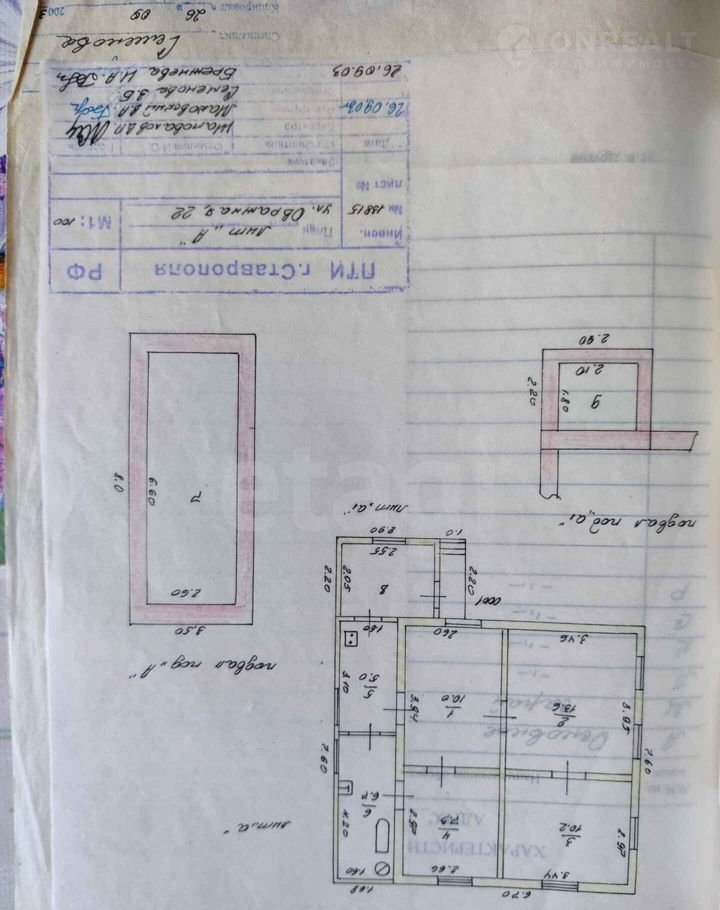 ONREALT
НЕДВИЖИМОСТЬ
etagi
лит. „а"
1.68
1.60
6
6.7
4.20
7.60
5
5.0
3.10
1.60
8
2.05
2.20
2.55
2.90
лит „а1"
1.0
2.20
0001
6.70
3.44
2.66
3
10.2
2.97
4
7.9
2.97
7.60
2
13.6
3.95
3.46
1
10.0
3.94
2.60
подвал под „А"
3.50
2.60
7
6.60
8.0
подвал под „а1"
9
1.80
2.20
2.10
2.90
ПТИ г. Ставрополя
РФ
Инвен.
№ 13815
лист №
План
лит „А"
ул. Овражная, 22
М1: 100
Заказчик
Дата
Исполнитель
Фамилия И.О.
Шаповалов
Маковский В.А.
26.09.03
Семенова З.Б
Брежнева Н.А.
26.09.03
Специалист
Семенова
Копировал
26
09
2003
ХАРАКТЕРИСТИ
АДРЕС
Основное
Сарай